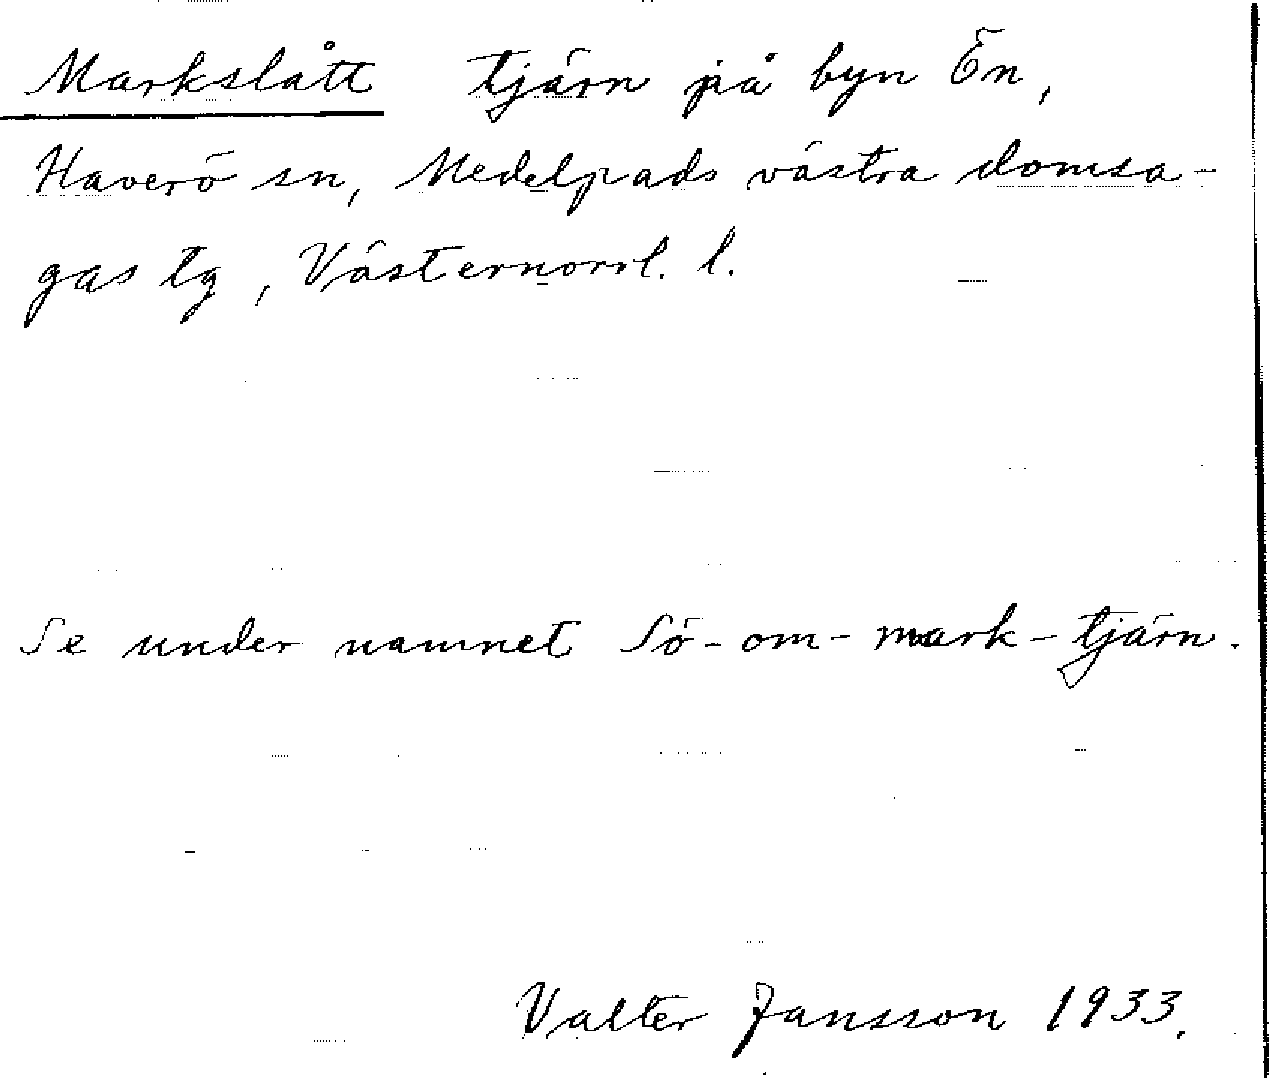 Markslått tjärn på byn Ön,
Haverö sn, Medelpads västra domsa-
gas tg, Västernorrl. l.
Se under namnet Sö-om-mark-tjärn.
Valter Jansson 1933.